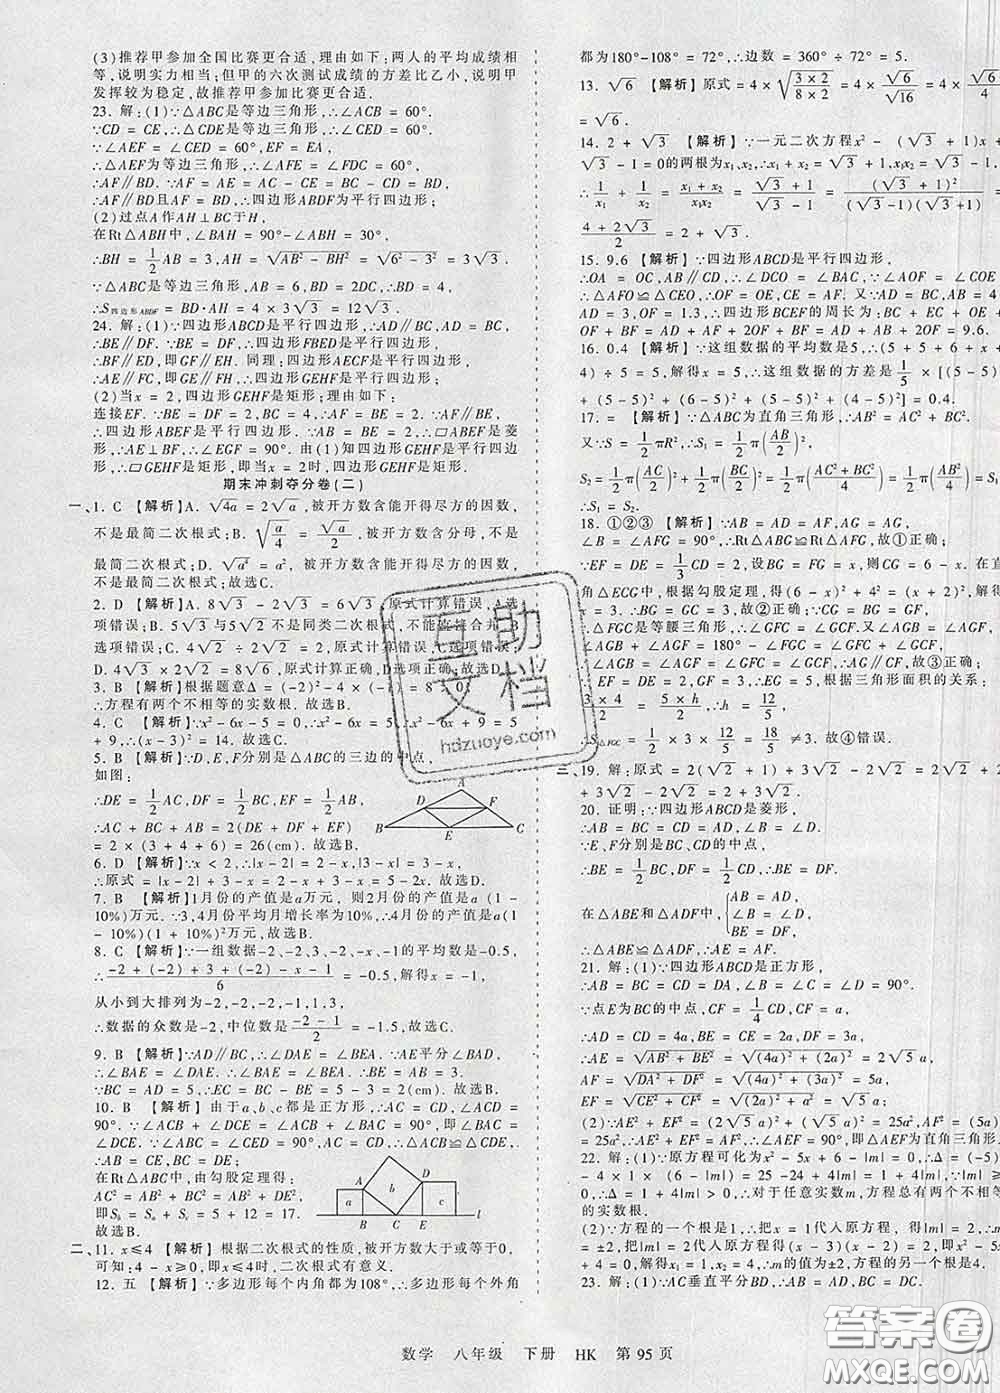 (3)推荐甲参加全国比赛更合适,理由如下:两人的平均成绩
相等,说明实力相当;但甲的六次测试成绩的方差比乙小,说明甲
发挥较为稳定,故推荐甲参加比赛更合适.
23.解:(1)∵△ABC是等边三角形,∴∠ACB = 60°.
∵CD = CE,∴△CDE是等边三角形,∴∠CDE = 60°.
∵∠AEF = ∠CED = 60°,EF = EA,
∴△AEF为等边三角形,∴∠AFE = ∠FDC = 60°,
∴AF∥BD. ∵AF = AE = AC - EC = BC - CD = BD,
∴AF∥BD且AF = BD,∴四边形ABDF为平行四边形.
(2)过点A作AH⊥BC于H,
在Rt△ABH中,∠BAH = 90°-∠ABH = 30°,
∴BH = 1/2 AB = 3,AH = √(AB² - BH²) = √(6² - 3²) = 3√3.
∵△ABC是等边三角形,AB = 6,BD = 2DC,∴BD = 4,
∴S四边形ABDF = BD·AH = 4 × 3√3 = 12√3.
24.解:(1)∵四边形ABCD是平行四边形,∴AD∥BC,AD = BC,
∴BE∥DF. ∵BE = DF,∴四边形FBED是平行四边形,
∴BF∥ED,即GF∥EH. 同理:四边形AECF是平行四边形,
∴AE∥FC,即GE∥FH,∴四边形GEHF是平行四边形.
(2)当x = 2,四边形GEHF是矩形;理由如下:
连接EF. ∵BE = DF = 2,BC = 4,∴AF = BE = 2. ∵AF∥BE,
∴四边形ABEF是平行四边形. ∵AB = 2,∴▱ABEF是菱
形,∴AE⊥BF,∴∠EGF = 90°. 由(1)知四边形GEHF是平行四边
形,∴▱GEHF是矩形,即当x = 2时,四边形GEHF是矩形.
期末冲刺夺分卷(二)
一、1. C 【解析】A. √(4a) = 2√a,被开方数含能开得尽方的因数,
不是最简二次根式;B. √(a/4) = √a/2,被开方数含分母,不是
最简二次根式;D. √(a⁴) = a²,被开方数含能开得尽方的因数,
不是最简二次根式;故选C.
2. D 【解析】A. 8√3 - 2√3 = 6√3,原式计算错误,A选
项错误;B. 5√3与5√2不是同类二次根式,不能直接合并,B
选项错误;C. 4√2 ÷ 2√2 = 2,原式计算错误,C选项错误;
D. 4√3 × 2√2 = 8√6,原式计算正确,D选项正确;故选D.
3. B 【解析】根据题意Δ = (-2)² - 4 × (-1) = 8 > 0,
∴方程有两个不相等的实数根. 故选B.
4. C 【解析】∵x² - 6x - 5 = 0,∴x² - 6x = 5,∴x² - 6x + 9 = 5 +
9,∴(x - 3)² = 14. 故选C.
5. B 【解析】∵D,E,F分别是△ABC的三边的中点,
如图:
∴DE = 1/2 AC,DF = 1/2 BC,EF = 1/2 AB,
∴AC + BC + AB = 2(DE + DF + EF)
= 2 × (3 + 4 + 6) = 26(cm). 故选B.
A D F B E C
6. D 【解析】∵x < 2,∴|x - 2| = 2 - x,|3 - x| = 3 - x,
∴原式 = |x - 2| + |3 - x| = 2 - x + 3 - x = 5 - 2x. 故选D.
7. B 【解析】1月份的产值是a万元,则2月份的产值是a (1 -
10%)万元. ∵3,4月份平均月增长率为10%,∴4月份的产值是a(1 -
10%)(1 + 10%)²万元. 故选B.
8. C 【解析】∵一组数据-2,-2,3,-2,-x,-1的平均数是-0.5,
∴(-2 + (-2) + 3 + (-2) - x - 1)/6 = -0.5,解得x = -1,
从小到大排列为-2,-2,-2,-1,1,3,
∴数据的众数是-2,中位数是(-2 - 1)/2 = -1.5,故选C.
9. B 【解析】∵AD∥BC,∴∠DAE = ∠BEA. ∵AE平分∠BAD,
∴∠BAE = ∠DAE,∴∠BAE = ∠BEA,∴BE = AB = 3.
∵BC = AD = 5,∴EC = BC - BE = 5 - 3 = 2(cm). 故选B.
10. B 【解析】由于a、b、c都是正方形,∴AC = CD,∠ACD =
90°. ∵∠ACB + ∠DCE = ∠ACB + ∠BAC = 90°,∴∠BAC =
∠DCE. ∵∠ABC = ∠CED = 90°,AC = CD,∴△ACB≌△CDE,
∴AB = CE,BC = DE;
在Rt△ABC中,由勾股定理得:
AC² = AB² + BC² = AB² + DE²,
即Sb = Sa + Sc = 5 + 7 = 12,
故选B.
A D a b c B C E l
二、11. x≤4 【解析】根据二次根式的性质,被开方数大于或等于0,
可知:4 - x≥0,即x≤4时,二次根式有意义.
12. 五 【解析】∵多边形每个内角都为108°,∴多边形每个外角
都为180°-108° = 72°,∴边数 = 360° ÷ 72° = 5.
13. √6 【解析】原式 = 4 × √((3 × 2)/(8 × 2)) = 4 × √6/√16 = 4 × √6/4
= √6.
14. 2 + √3 【解析】∵一元二次方程x² - (√3 + 1)x +
√3 - 1 = 0的两根为x₁、x₂,∴x₁ + x₂ = √3 + 1,x₁x₂ = √3 - 1.
∴ 1/x₁ + 1/x₂ = (x₁ + x₂)/(x₁x₂) = (√3 + 1)/(√3 - 1) = (√3 + 1)²/((√3 - 1)(√3 +1)
(4 + 2√3)/2 = 2 + √3.
15. 9.6 【解析】∵四边形ABCD是平行四边形,
∴OA = OC,∴∠DCO = ∠BAC,∵∠AOF = ∠COE
∴△AFO≌△CEO,∴OF = OE,CE = AF. 又∵AB = DC =
AD = 3,OF = 1.3,∴四边形BCEF的周长为:BC + EC + OE +
OF + BF = AD + AF + 2OF + BF = AD + AB + 2OF = 9.6.
16. 0.4 【解析】∵这组数据的平均数是5,∴(5 + 5 + 6 + x +
4) ÷ 5 = 5,解得x = 5,∴这组数据的方差是1/5 × [(5 - 5)²
+ (5 - 5)² + (6 - 5)² + (5 - 5)² + (4 - 5)²] = 0.4.
17. = 【解析】∵△ABC为直角三角形,∴AB² = AC² + BC².
又∵S = 1/2 πR²,∴S₁ = 1/2 π(AB/2)²,
S₂ = 1/2 π(AC/2)² + 1/2 π(BC/2)² = 1/2 π((AC² + BC²)/4) = 1/2 π(AB/2)²
∴S₁ = S₂.
18. ①②③ 【解析】∵AB = AD = AF,AG = AG,
∠B = ∠AFG = 90°,∴Rt△ABG≌Rt△AFG,故①正确;
∵EF = DE = 1/3 CD = 2,设BG = FG = x,则CG = 6 - x. 在直
角△ECG中,根据勾股定理,得(6 - x)² + 4² = (x + 2)²,解得
x = 3. ∴BG = GC = 3. 故②正确;∵CG = BG,BG = GF,∴CG =
GF,∴△FGC是等腰三角形,∠GFC = ∠GCF. 又∠AGB =
∠AGF,∠AGB + ∠AGF = 180° - ∠FGC = ∠GFC + ∠GCF,
∴∠AGB = ∠AGF = ∠GFC = ∠GCF,∴AG∥CF,故③正确;
EF = DE = 2,GF = 3,∴EG = 5. 根据三角形面积的关系:
(3 × 4)/2 = (5 × h)/2,∴h = 12/5,
∴S△FGC = 1/2 × 3 × 12/5 = 18/5 ≠3. 故④错误.
三、19. 解:原式 = 2(√2 + 1) + 3√2 - 2√2 = 2√2 + 2
+ 3√2 - 2√2 = 2 + 3√2.
20. 证明:∵四边形ABCD是菱形,
∴AB = BC = CD = AD,∠B = ∠D.
∵E、F分别是BC、CD的中点,
∴BE = 1/2 BC,DF = 1/2 CD,∴BE = DF.
在△ABE和△ADF中,{AB = AD, ∠B = ∠D, BE = DF,
∴△ABE≌△ADF,∴AE = AF.
21. 解:(1)∵四边形ABCD是正方形,
∴AB = BC = CD = DA,∠B = ∠C = ∠D = 90°.
∵点E为BC的中点,CF = 1/4 CD,CF = a,
∴AD = CD = 4a,BE = CE = 2a,DF = 3a,
∴AE = √(AB² + BE²) = √((4a)² + (2a)²) = 2√5 a,
AF = √(DA² + DF²) = √((4a)² + (3a)²) = 5a,
EF = √(CE² + CF²) = √((2a)² + a²) = √5 a.
(2)∵AE² + EF² = (2√5 a)² + (√5 a)² = 25a²,AF² = (5a)²
= 25a²,∴AE² + EF² = AF²,∴∠AEF = 90°,即△AEF为直角三角形.
22. 解:(1)∵原方程可化为x² - 5x + 6 - |m| = 0,∴Δ = (-5)²
- 4 × 1 × (6 - |m|) = 25 -24 + 4|m| = 1 + 4|m|. ∵|m|≥0
∴Δ = 1 + 4|m| > 0,∴对于任意实数m,方程总有两个不相等
的实数根.
(2)∵方程的一个根是1,∴把x = 1代入原方程,得|m| = 2,∴m
= ±2,把|m| = 2代入原方程,得x² - 5x + 4 = 0,
解得x₁ = 1,x₂ = 4,∴m的值为±2,方程的另一个根是4.
23. 解:(1)∵AC垂直平分BD,∴AB = AD,BC = DC.
数学 八年级 下册 HK 第95页
互助文档
hdzuoye.com
答案圈
MXQE.COM